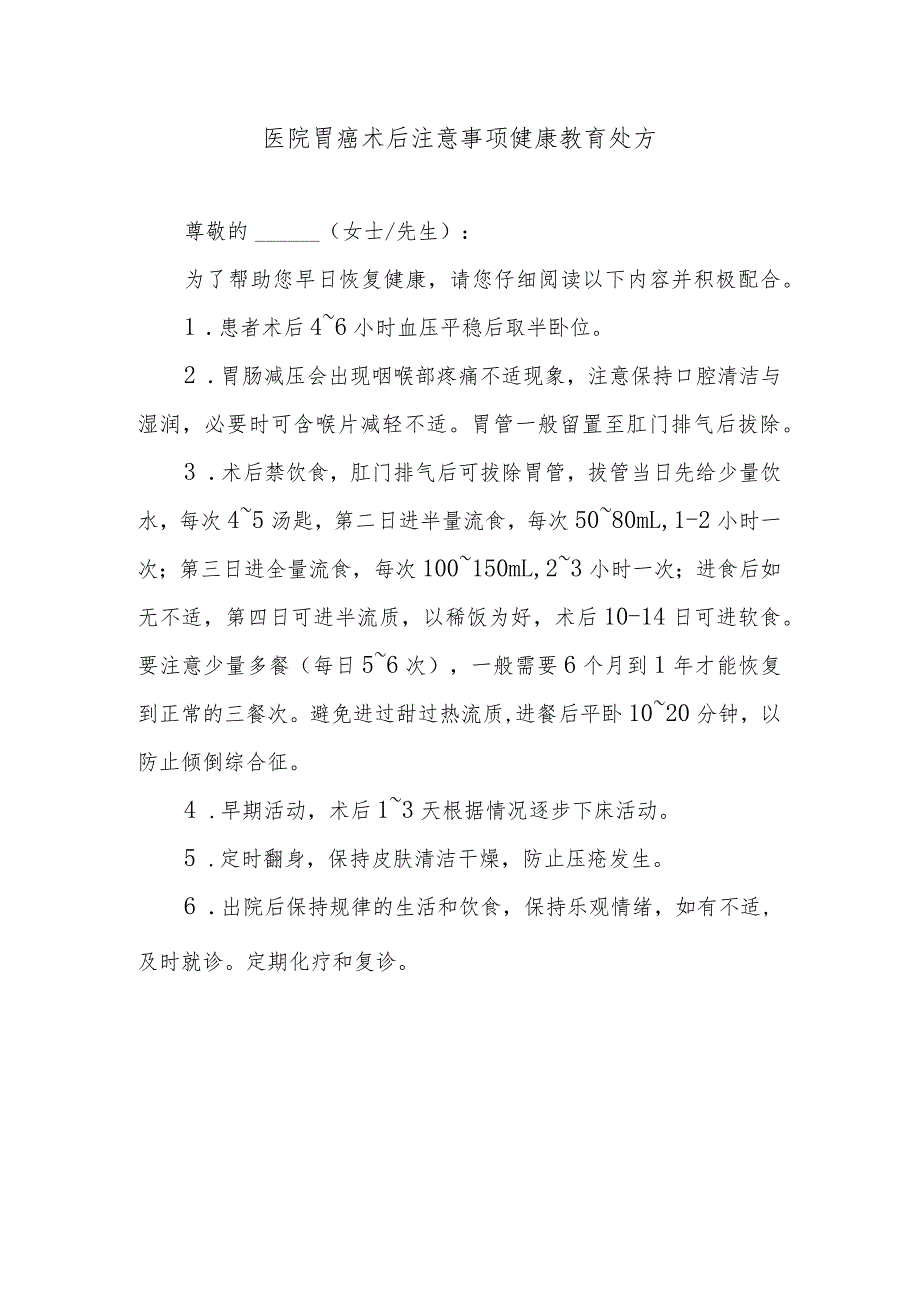 医院胃癌术后注意事项健康教育处方
尊敬的 _____（女士/先生）：
为了帮助您早日恢复健康，请您仔细阅读以下内容并积极配合。
1 .患者术后 4~6 小时血压平稳后取半卧位。
2 .胃肠减压会出现咽喉部疼痛不适现象，注意保持口腔清洁与
湿润，必要时可含喉片减轻不适。胃管一般留置至肛门排气后拔除。
3 .术后禁饮食，肛门排气后可拔除胃管，拔管当日先给少量饮
水，每次 4~5 汤匙，第二日进半量流食，每次 50~80mL,1-2 小时一
次；第三日进全量流食，每次 100~150mL,2~3 小时一次；进食后如
无不适，第四日可进半流质，以稀饭为好，术后 10-14 日可进软食。
要注意少量多餐（每日 5~6 次），一般需要 6 个月到 1 年才能恢复
到正常的三餐次。避免进过甜过热流质,进餐后平卧 10~20 分钟，以
防止倾倒综合征。
4 .早期活动，术后 1~3 天根据情况逐步下床活动。
5 .定时翻身，保持皮肤清洁干燥，防止压疮发生。
6 .出院后保持规律的生活和饮食，保持乐观情绪，如有不适，
及时就诊。定期化疗和复诊。